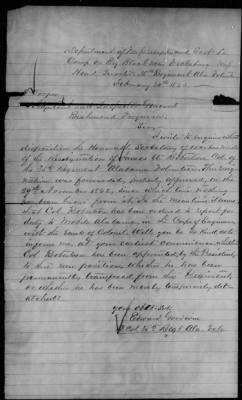 Department of Mississippi and East La
Camp on Big Black near Vicksburg Miss
Head Quarters 35th Regiment Ala Vols
February 20th 1863
Adjutant and Inspector General
Richmond Virginia
Sir
I write to inquire what
disposition the Honorable Secretary of War has made
of the Resignation of James W Robertson Col of
the 35th Regiment Alabama Volunteers. This Resig
nation was forwarded, approved, on the
29th November 1862, since which time nothing
has been heard from it. In the meantime it seems
that Col Robertson has been ordered to report for
duty at Mobile Ala in the Corps of Engineers
with the rank of Colonel. Will you be so kind as to
inform me at your earliest convenience whether
Col Robertson has been appointed by the President
to this new position, whether he has been
permanently transferred from this Regiment,
or whether he has been merely temporarily det-
atched?
Your Obt Svt
Edward Goodwin
Lt Col 35th Regt Ala Vols